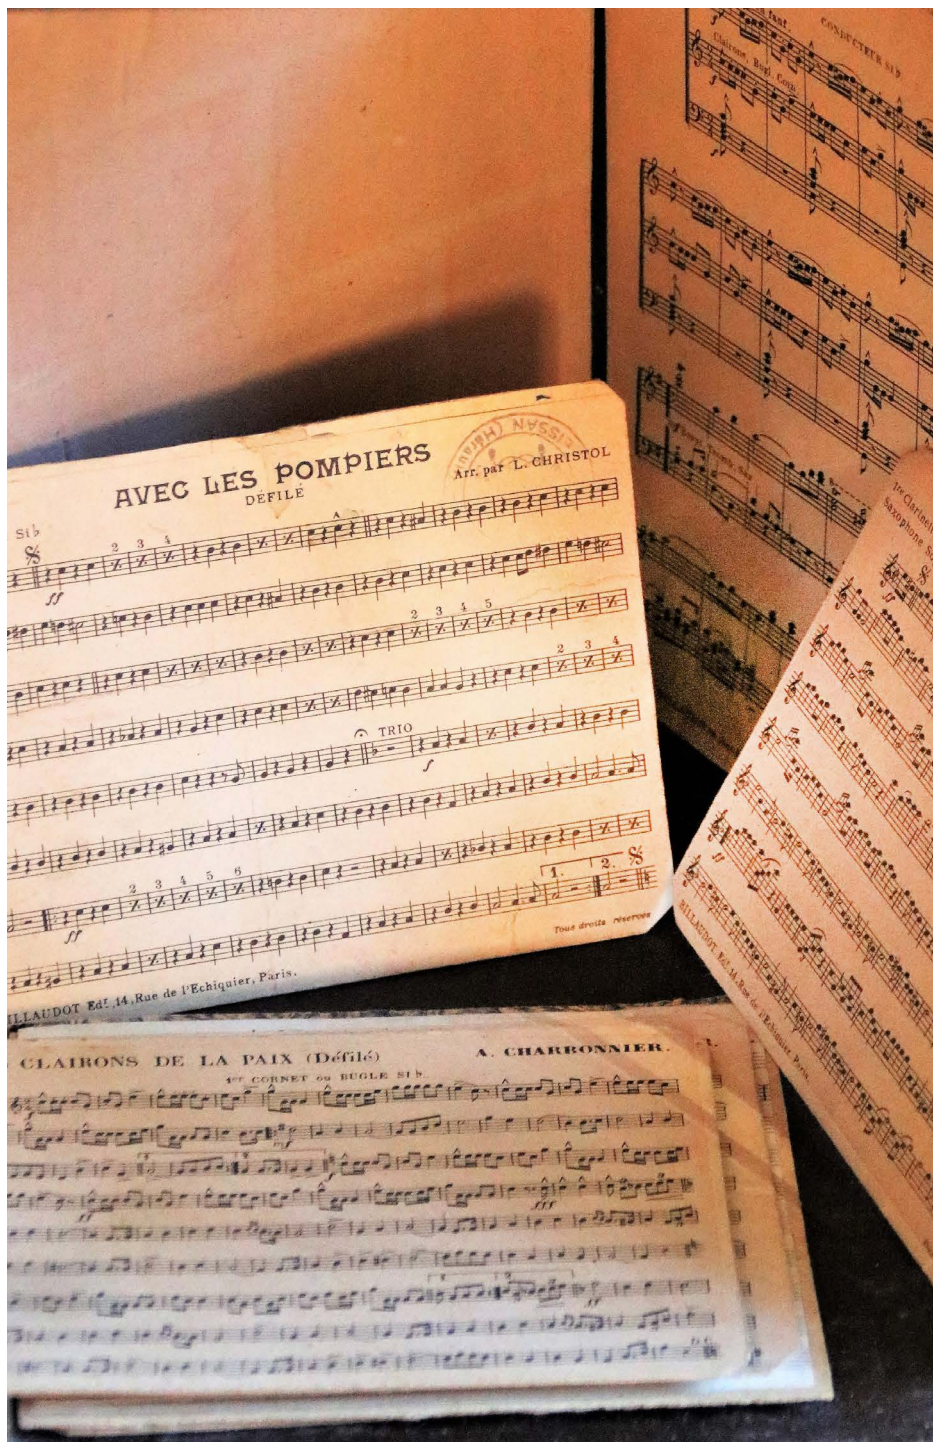 CONDUCTEUR SI♭
Clairons, Bugl. Corn
AVEC LES POMPIERS
DÉFILÉ
EISSAN (Hérau
Arr. par L. CHRISTOL
Si♭
ff
2 3 4
2 3 4 5
2 3 4
TRIO
f
2 3 4 5 6
ff
1. 2.
Tous droits réservés
ILLAUDOT Edr, 14, Rue de l'Echiquier, Paris.
1re Clarinet
Saxophone S
ff
ff
BILLAUDOT, Edr, 14, Rue de l'Echiquier, Paris.
CLAIRONS DE LA PAIX (Défilé)
A. CHARBONNIER.
R.
1er CORNET ou BUGLE SI♭
f
mf
f
ff
fff
ff
D.C.